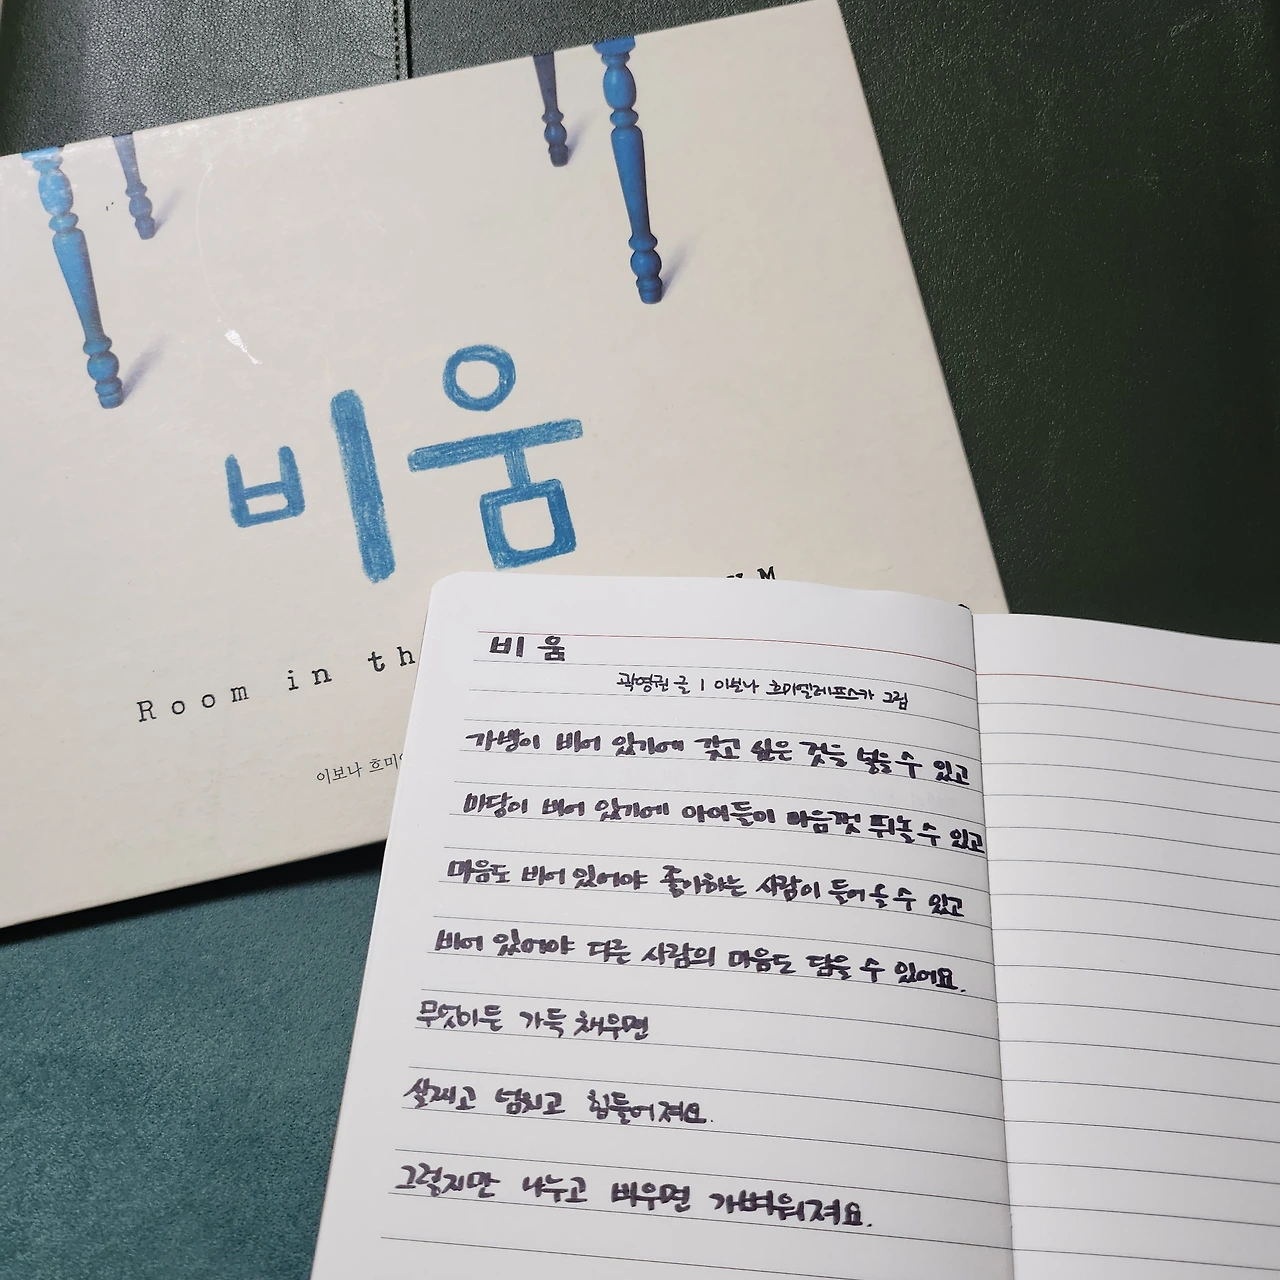 비움
Room in th
이보나 흐미
비움
곽영권 글 | 이보나 흐미엘레프스카 그림
가방이 비어 있기에 갖고 싶은 것들 넣을 수 있고
마당이 비어 있기에 아이들이 마음껏 뛰놀 수 있고
마음도 비어 있어야 좋아하는 사람이 들어 올 수 있고
비어 있어야 다른 사람의 마음도 담을 수 있어요.
무엇이든 가득 채우면
살찌고 넘치고 힘들어져요.
그렇지만 나누고 비우면 가벼워져요.